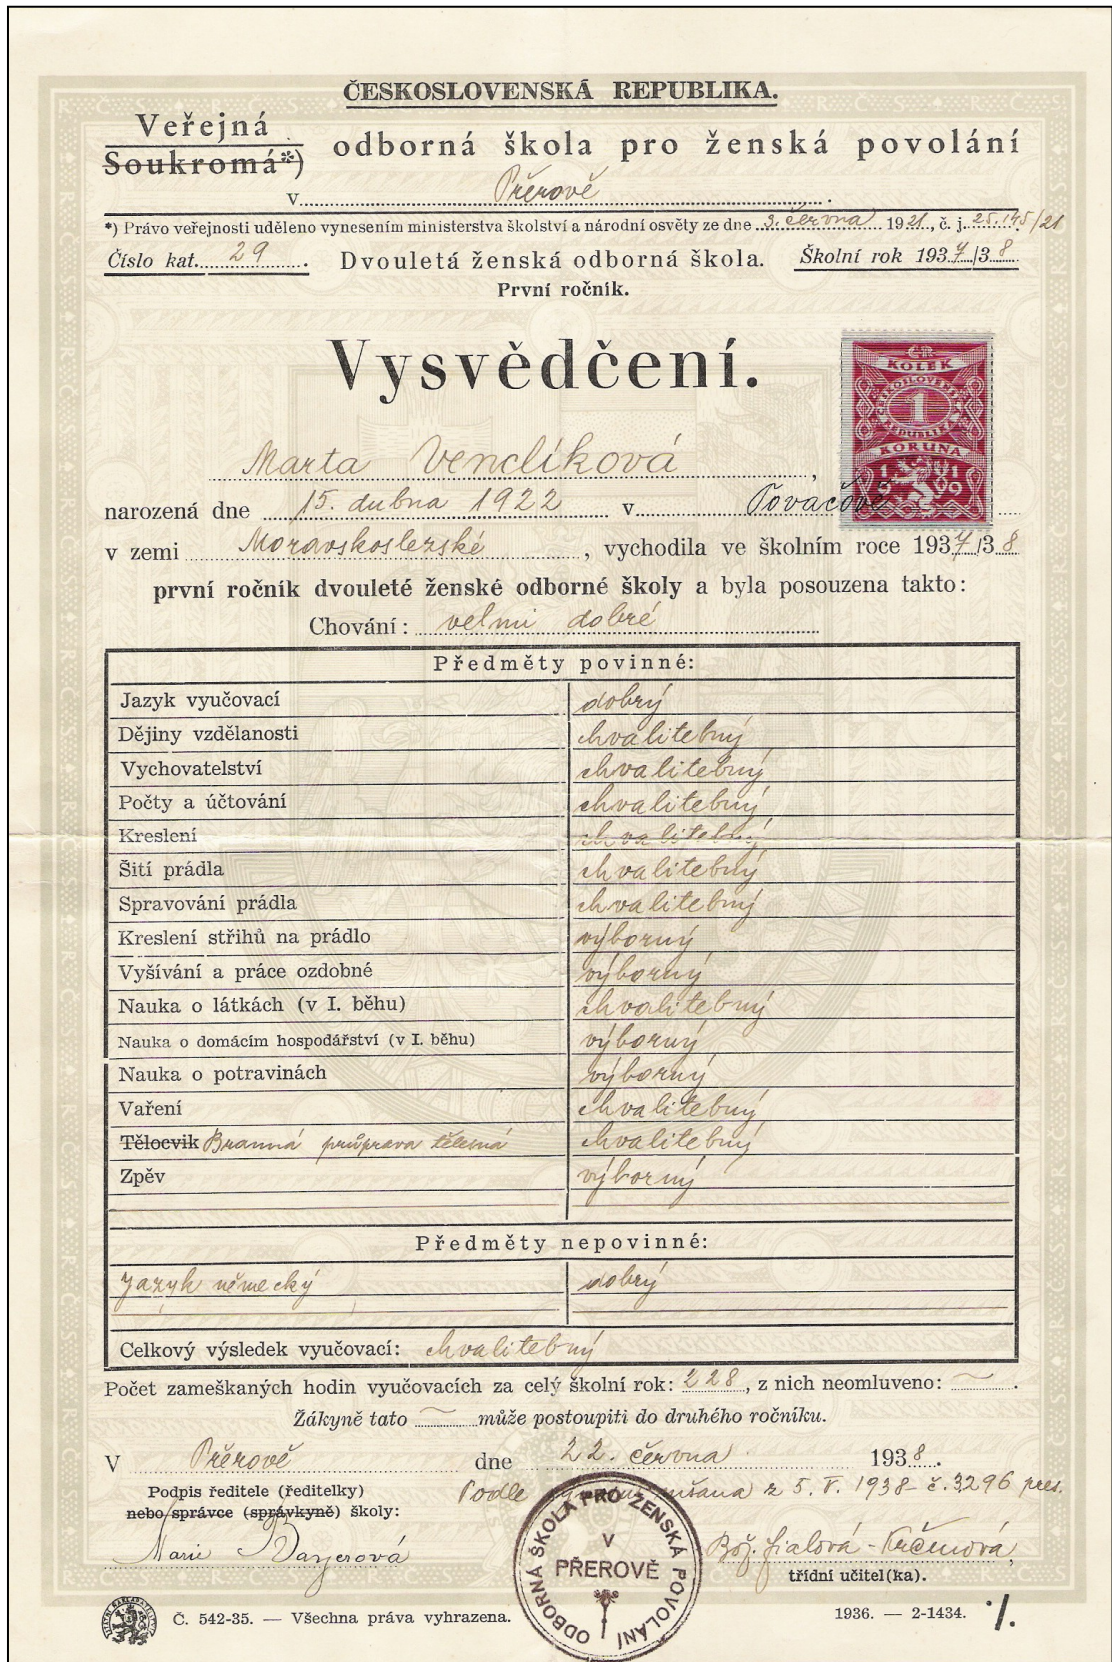 ČESKOSLOVENSKÁ REPUBLIKA.
Veřejná
Soukromá*) odborná škola pro ženská povolání
v Přerově.
*) Právo veřejnosti uděleno vynesením ministerstva školství a národní osvěty ze dne 3. června 1921, č. j. 25.145/21
Číslo kat. 29. Dvouletá ženská odborná škola. Školní rok 1937/38
První ročník.
Vysvědčení.
KOLEK
ČESKOSLOVENSKÁ
1
REPUBLIKA
KORUNA
1919
Marta Vendlíková,
narozená dne 15. dubna 1922 v Tovačově
v zemi Moravskoslezské, vychodila ve školním roce 1937/38
první ročník dvouleté ženské odborné školy a byla posouzena takto:
Chování: velmi dobré
Předměty povinné:
Jazyk vyučovací dobrý
Dějiny vzdělanosti chvalitebný
Vychovatelství chvalitebný
Počty a účtování chvalitebný
Kreslení chvalitebný
Šití prádla chvalitebný
Spravování prádla chvalitebný
Kreslení střihů na prádlo výborný
Vyšívání a práce ozdobné výborný
Nauka o látkách (v I. běhu) chvalitebný
Nauka o domácím hospodářství (v I. běhu) výborný
Nauka o potravinách výborný
Vaření chvalitebný
Tělocvik Branná průprava tělesná chvalitebný
Zpěv výborný
Předměty nepovinné:
Jazyk německý dobrý
Celkový výsledek vyučovací: chvalitebný
Počet zameškaných hodin vyučovacích za celý školní rok: 228, z nich neomluveno: —.
Žákyně tato — může postoupiti do druhého ročníku.
V Přerově dne 22. června 1938.
Podpis ředitele (ředitelky)
nebo správce (správkyně) školy:
Podle z 5. V. 1938 č. 3296 pres.
Marie Bayerová
Bož. Fialová-Krčmová,
třídní učitel(ka).
ODBORNÁ ŠKOLA PRO ŽENSKÁ POVOLÁNÍ
V
PŘEROVĚ
Č. 542-35. — Všechna práva vyhrazena.
1936. — 2-1434. ·/.